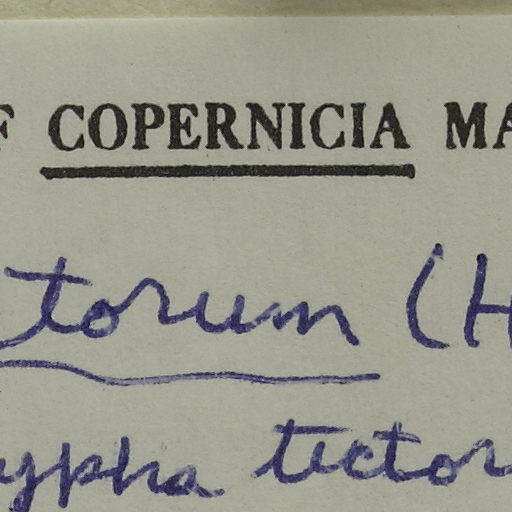 F COPERNICIA MA
torum (H
ypha tector